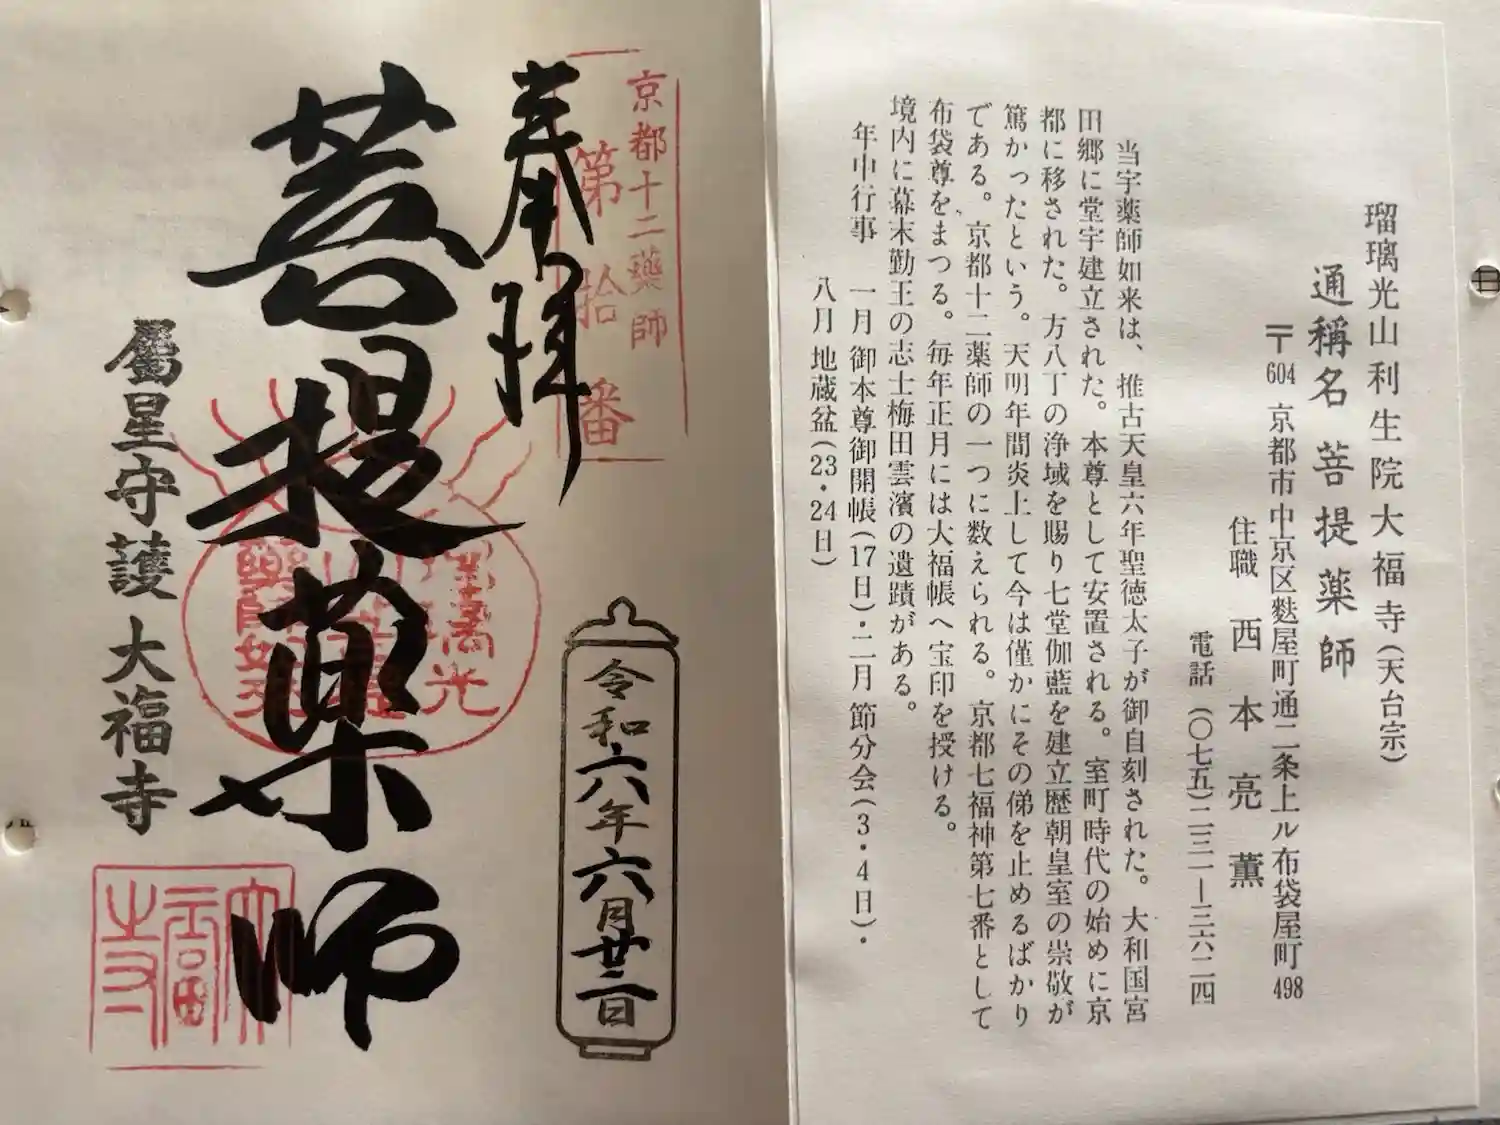 瑠璃光山利生院大福寺(天台宗)
通稱名 菩提薬師
〒604 京都市中京区麩屋町通二条上ル布袋屋町498
住職 西本亮薫
電話 (〇七五)二三一ー三六二四
当宇薬師如来は、推古天皇六年聖徳太子が御自刻された。大和国宮
田郷に堂宇建立された。本尊として安置される。室町時代の始めに京
都に移された。方八丁の浄域を賜り七堂伽藍を建立歴朝皇室の崇敬が
篤かったという。天明年間炎上して今は僅かにその俤を止めるばかり
である。京都十二薬師の一つに数えられる。京都七福神第七番として
布袋尊をまつる。毎年正月には大福帳へ宝印を授ける。
境内に幕末勤王の志士梅田雲濱の遺蹟がある。
年中行事 一月御本尊御開帳(17日)・二月節分会(3・4日)・
八月地蔵盆(23・24日)
京都十二藥師
第拾番
奉拝
令和六年六月廿二日
菩提薬師
瑠璃光
藥師如来
屬星守護 大福寺
大福寺